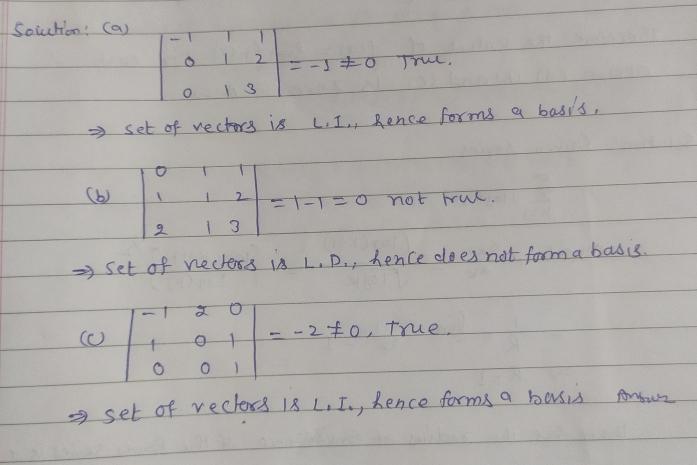 Solution: (a)
| -1 1 1 |
| 0 1 2 | = -1 ≠ 0 True.
| 0 1 3 |
⇒ set of vectors is L.I., hence forms a basis.
(b) | 0 1 1 |
| 1 1 2 | = 1-1 = 0 not true.
| 2 1 3 |
⇒ set of vectors is L.D., hence does not form a basis.
(c) | -1 2 0 |
| 1 0 1 | = -2 ≠ 0, True.
| 0 0 1 |
⇒ set of vectors is L.I., hence forms a basis Answer